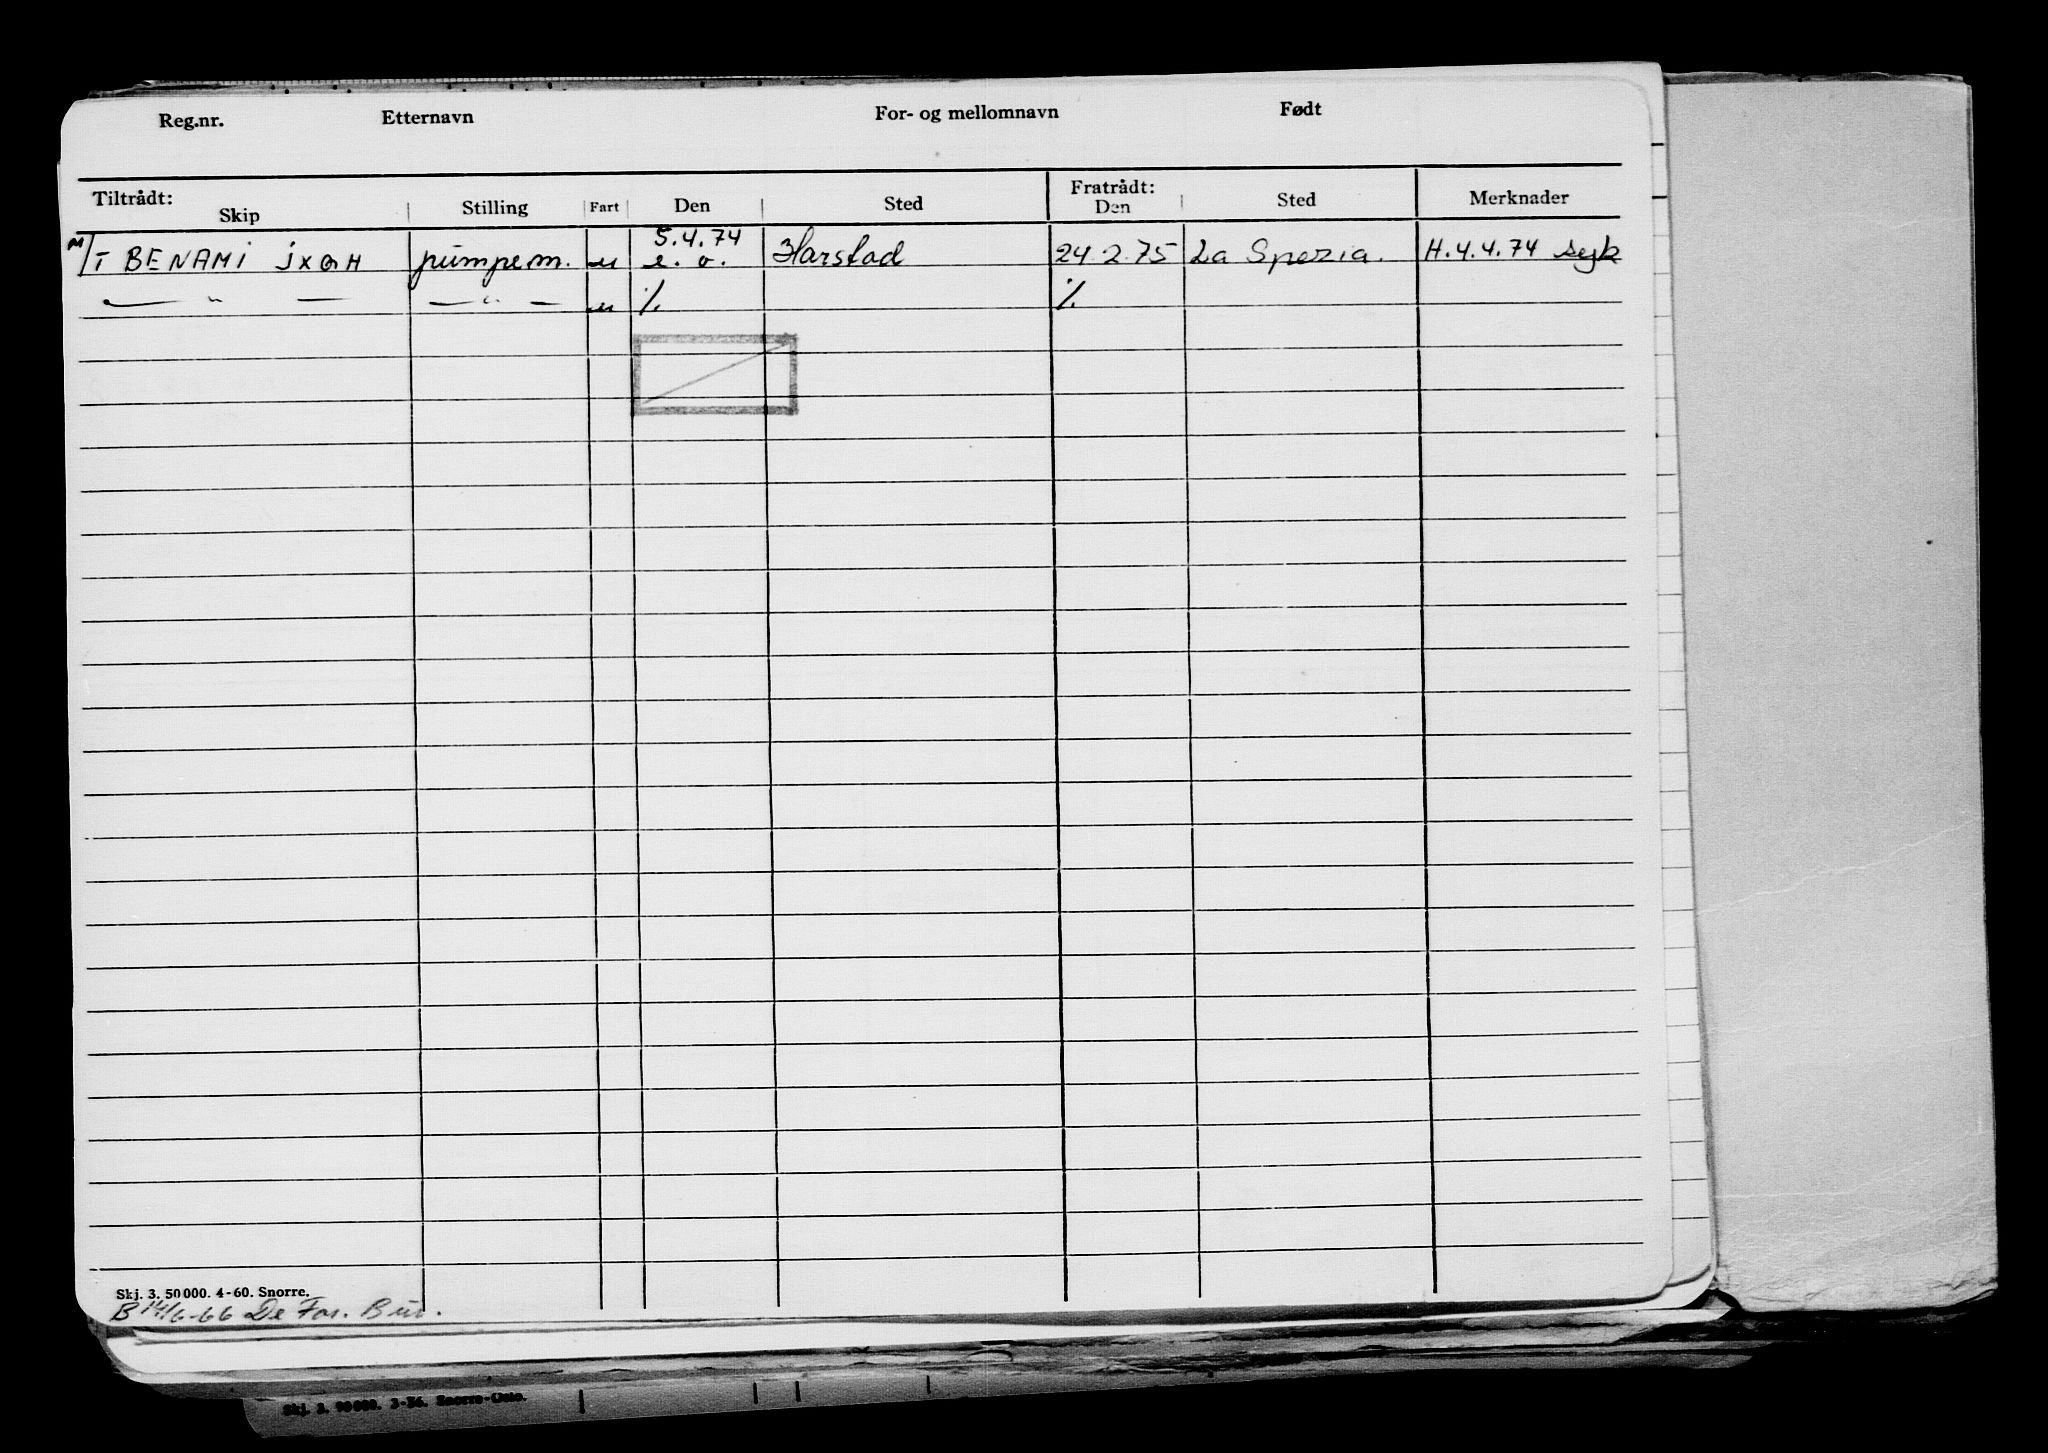 Reg.nr. Etternavn For- og mellomnavn Født
Tiltrådt: Fratrådt:
Skip Stilling Fart Den Sted Den Sted Merknader
5.4.74
M/T BENAMI JXQH pumpem. u e.o. Harstad 24.2.75 La Spezia. H.4.4.74 sesk
— " — — " — u ./. ./.
Skj. 3. 50 000. 4-60. Snorre.
B 14/6-66 De For. Bur.
Skj. 3. 90 000. 3-56. Snorre-Otto.